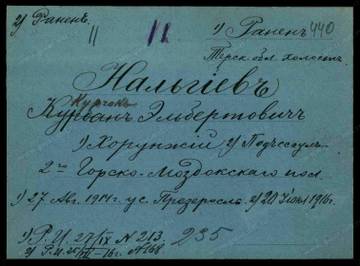 2) Раненъ. 11 11 1) Раненъ 440
Терск. обл. холост.
Нальгіевъ
Курганъ
Курванъ Эльбертовичъ
1) Хорунжій 2) Подъесаулъ
2го Горско-Моздокскаго пол.
1) 27 Авг. 1914 г. у с. Предеросль. 2) 20 Іюня 1916 г.
1) Р. И. 27/IX N 213 235
2) Р. И. 25/VII-16 г. N 168